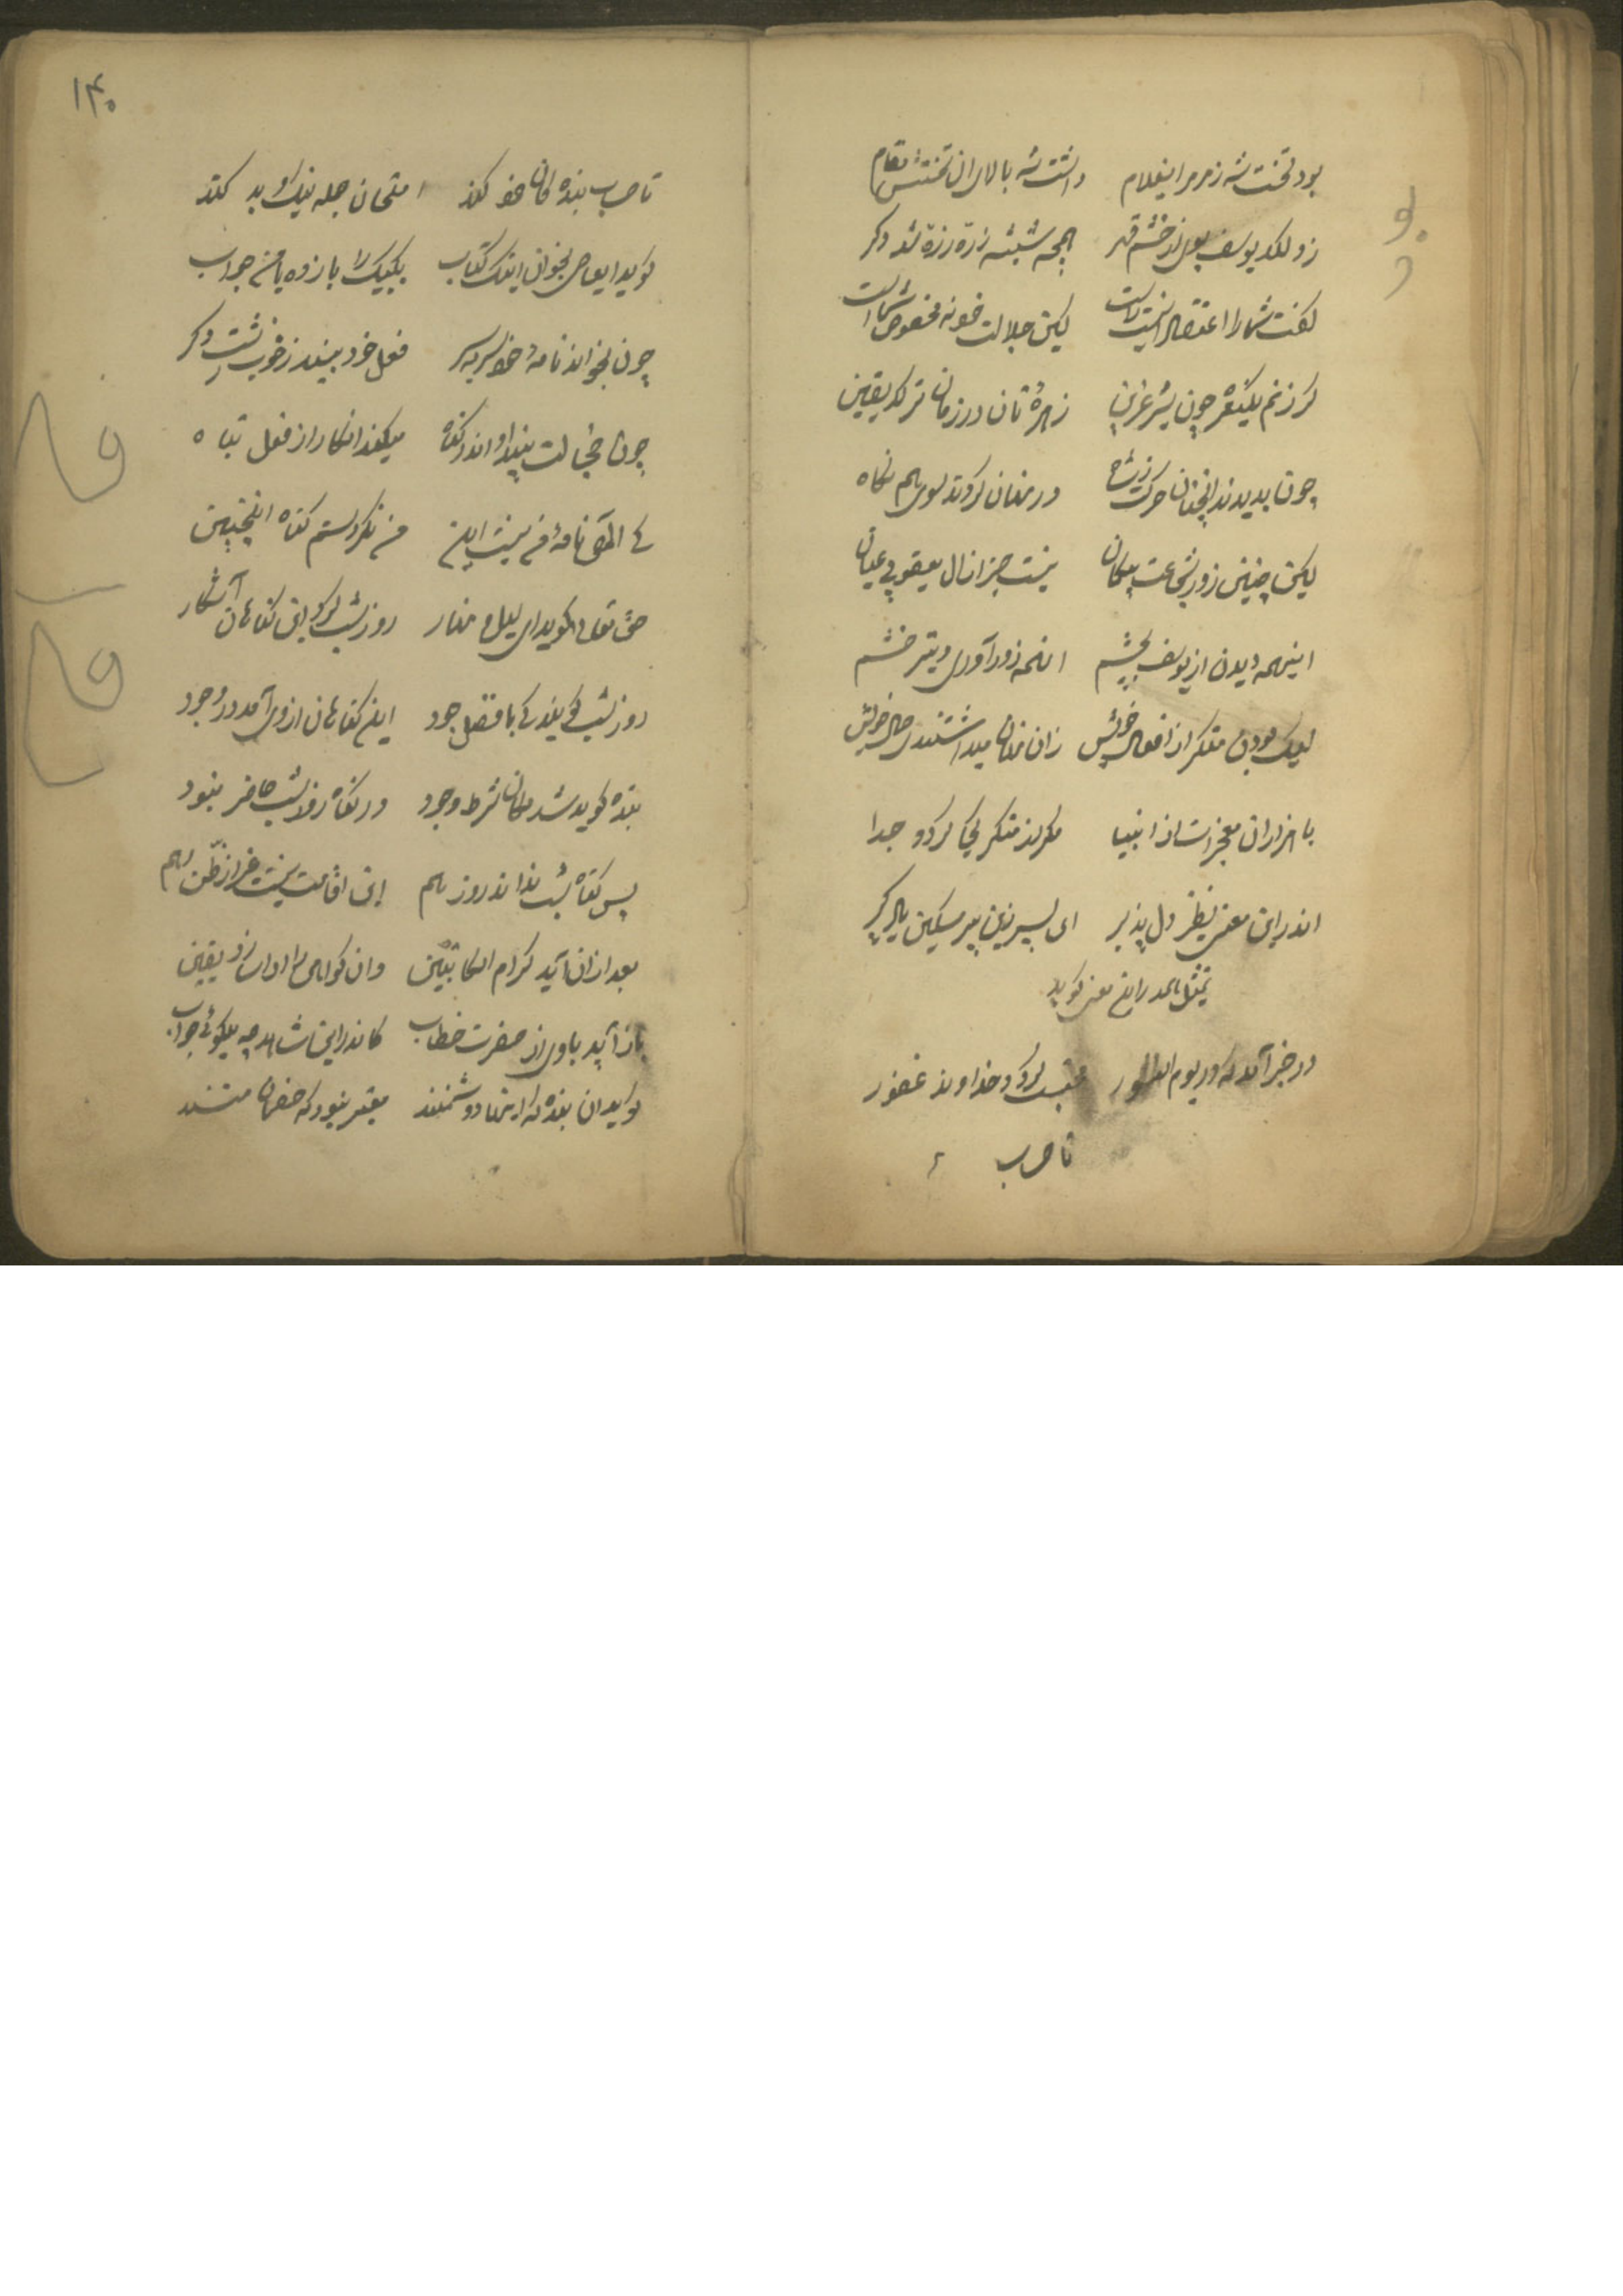 بود تخت شه ز مرمر ایغلام داشت شه بالای ان تختش مقام
زد لکد یوسف بوی از خشم و قهر همچه شیشه زره زره شد دکر
کفت شما را اعتقاد اینست راست لیکن جلالت خونه مخصوص شماست
کر زنم یکنعره چون شیر غرین زهره تان در زمان ترکد یقین
چون بدیدند انچنان حرکت ز شاه در نهان کردند سوی هم نکاه
لیکن چنین زور و شجاعت بیکمان نیست جز از ال یعقوبی عیان
اینهمه دیدن از یوسف بچشم انهمه زور آوری و تیر خشم
لیک بودن منکر از افعال خویش زان نهان میداشتندی حال خویش
با هزاران معجزات از انبیا هرکز منکر کی کردد جدا
اندر این معنی نظر دل پذیر ای پسر زین پیر مسکین یاد کیر
تمثیل امد در این معنی کوید
در خبر آمد که در یوم النشور کردد خداوند غفور
تا حساب
۱۴۰
تا حساب بنده کان خود کند امتحان جمله نیک و بد کند
کوید ایعاصی بخوان اینک کتاب یکبیک را باز ده با من جواب
چون بخواند نامهٔ خود سر بسر فعل خود بیند ز خوب و زشت دکر
چون خجالت بیند او اندر کناه میکند انکار از فعل تباه
کی الهی نامهٔ من نیست این من نکردستم کناه اینچنین
حق تعالی کوید ای لیل و نهار روز و شب کرد این کناهان آشکار
روز و شب کویند کی با فضل و جود این کناهان از وی آمد در وجود
بنده کوید شد مکان شرط وجود در کناه روز شب حاضر نبود
پس کناه شب نداند روز هم این اقامت نیست غیر از ظن و هم
بعد از آن آید کرام الکاتبین وان کواهی را ادا سازد یقین
باز آید با وی از حضرت خطاب کاندر این شاهد چه میکوئی جواب
کوید ان بنده که اینها دشمنند معتبر نبود که خصمان منند